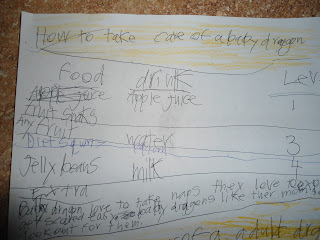 How to take care of a baby dragon
Food drink Lev
Apple juice Apple juice 1
fruit snaks
Any
Fruit water 3
Diet
Jelly beans milk 4
Extra
Baby dragon love to take naps they love to exp
baby dragons like ther mom
look out for them.
of a adult dra